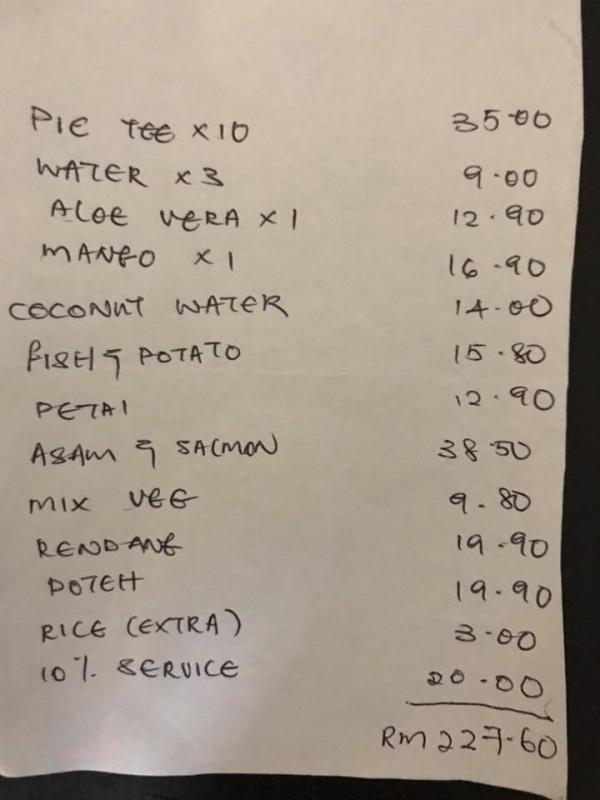 PIE TEE X 10 35.00
WATER X 3 9.00
ALOE VERA X 1 12.90
MANGO X 1 16.90
COCONUT WATER 14.00
FISH & POTATO 15.80
PETAI 12.90
ASAM & SALMON 38.50
MIX VEG 9.80
RENDANG 19.90
POTEH 19.90
RICE (EXTRA) 3.00
10% SERVICE 20.00
RM 227.60